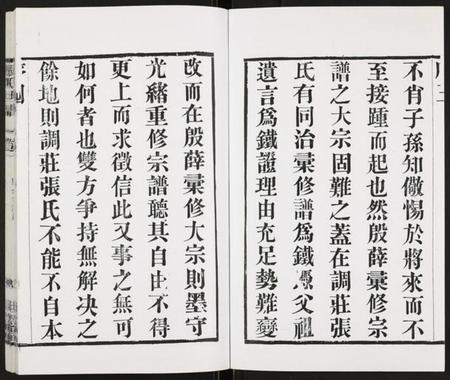 不肖子孫知儆惕於將來而不
至接踵而起也然殷薛彙修宗
譜之大宗固難之蓋在調莊張
氏有同治彙修譜為鐵憑父祖
遺言為鐵證理由充足勢難變
改而在殷薛彙修大宗則墨守
光緒重修宗譜聽其自由不得
更上而求徵信此又事之無可
如何者也雙方爭持無解决之
餘地則調莊張氏不能不自本